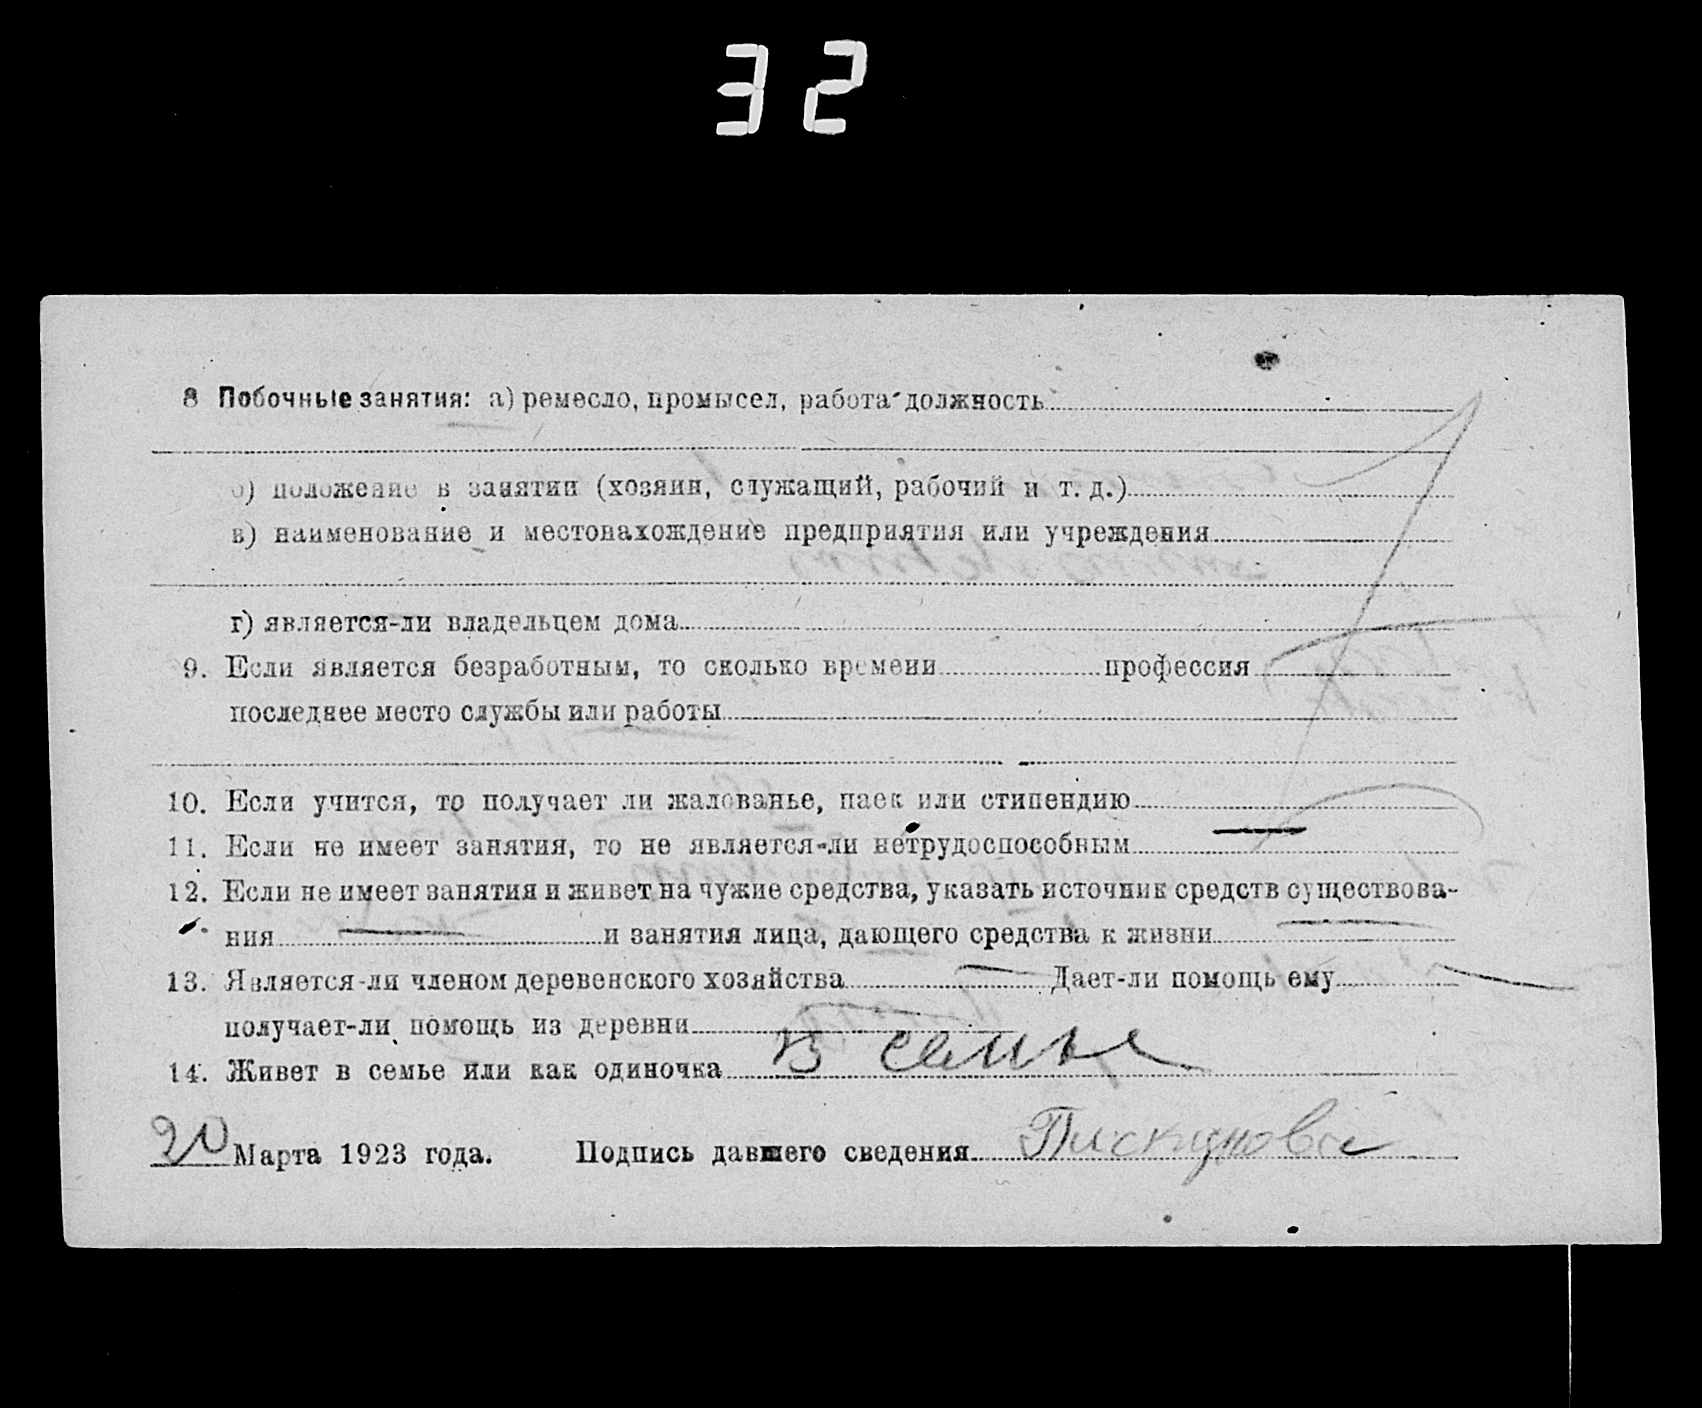 32
8 Побочные занятия: а) ремесло, промысел, работа-должность
б) положение в занятии (хозяин, служащий, рабочий и т. д.)
в) наименование и местонахождение предприятия или учреждения
г) является-ли владельцем дома
9. Если является безработным, то сколько времени профессия
последнее место службы или работы
10. Если учится, то получает ли жалованье, паек или стипендию
11. Если не имеет занятия, то не является-ли нетрудоспособным
12. Если не имеет занятия и живет на чужие средства, указать источник средств существова-
ния и занятия лица, дающего средства к жизни
13. Является-ли членом деревенского хозяйства Дает-ли помощь ему
получает-ли помощь из деревни
14. Живет в семье или как одиночка в семье
20 Марта 1923 года. Подпись давшего сведения